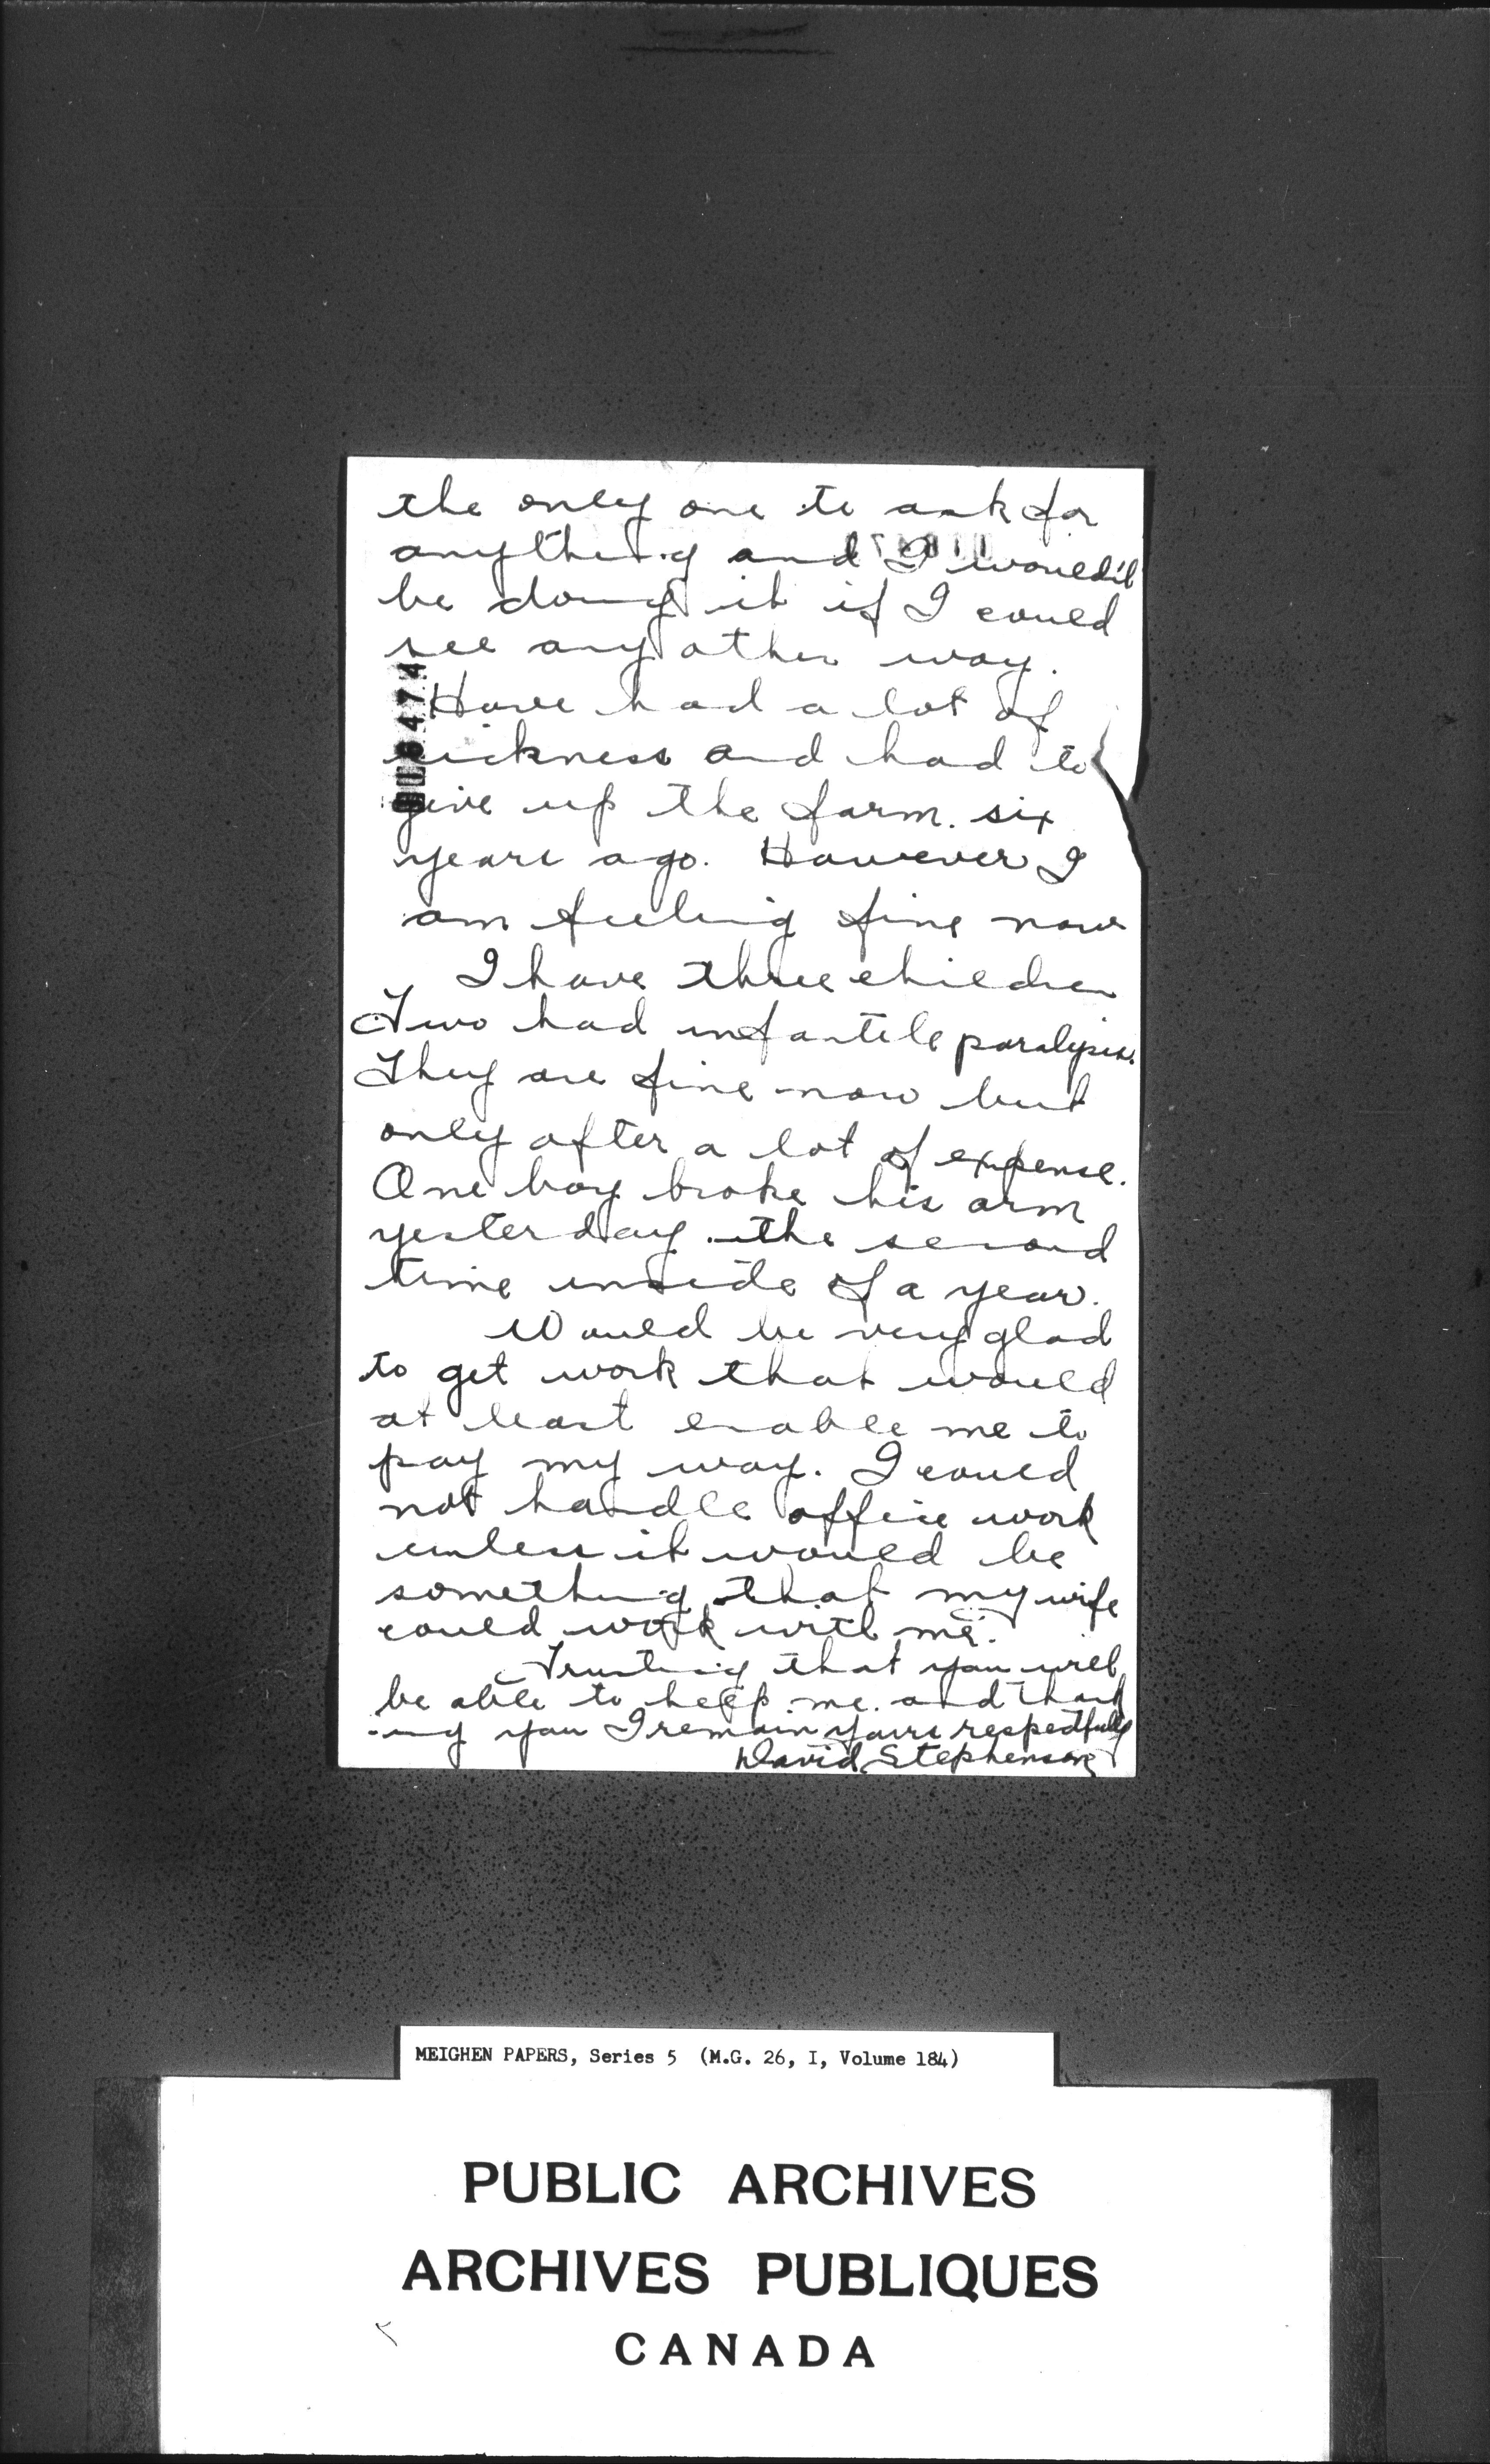 the only one to ask for
anything and I would't
be doing it if I could
see any other way.
Have had a lot of
sickness and had to
give up the farm. six
years ago. However I
am feeling fine now
I have three children
Two had infantile paralysis.
They are fine now but
only after a lot of expense.
One boy broke his arm
yesterday the second
time inside of a year.
Would be very glad
to get work that would
at least enable me to
pay my way. I could
not handle office work
unless it would be
something that my wife
could work with me.
Trusting that you will
be able to help me and thank
-ing you I remain yours respectfully
David Stephenson
MEIGHEN PAPERS, Series 5 (M.G. 26, I, Volume 184)
PUBLIC ARCHIVES
ARCHIVES PUBLIQUES
CANADA